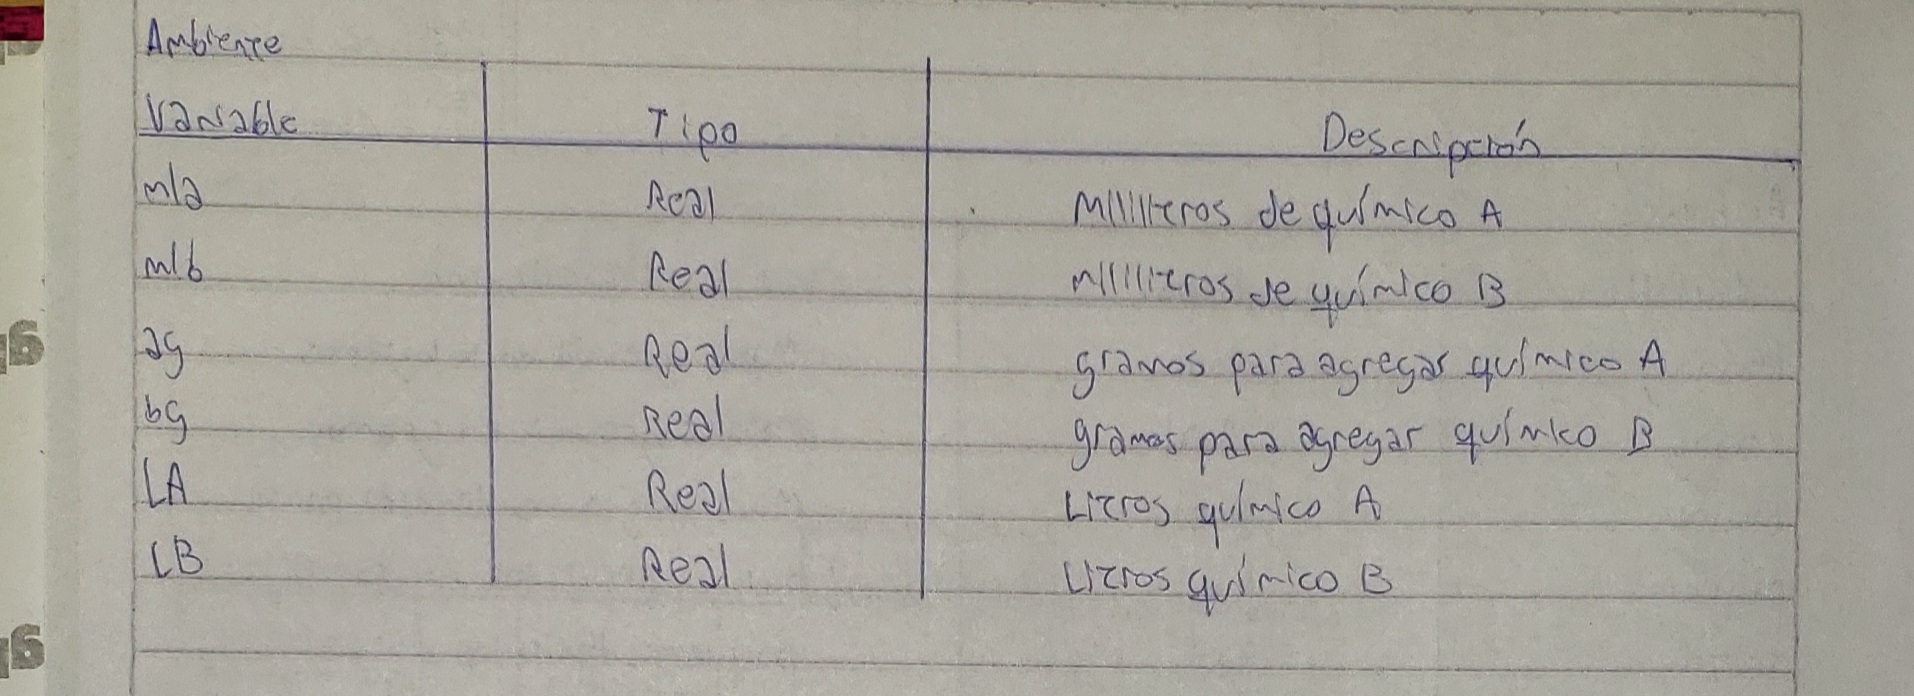 Ambiente
Variable Tipo Descripción
mla Real Mililitros de químico A
mlb Real mililitros de químico B
ag Real gramos para agregar químico A
bg Real gramos para agregar químico B
LA Real Litros químico A
LB Real Litros químico B